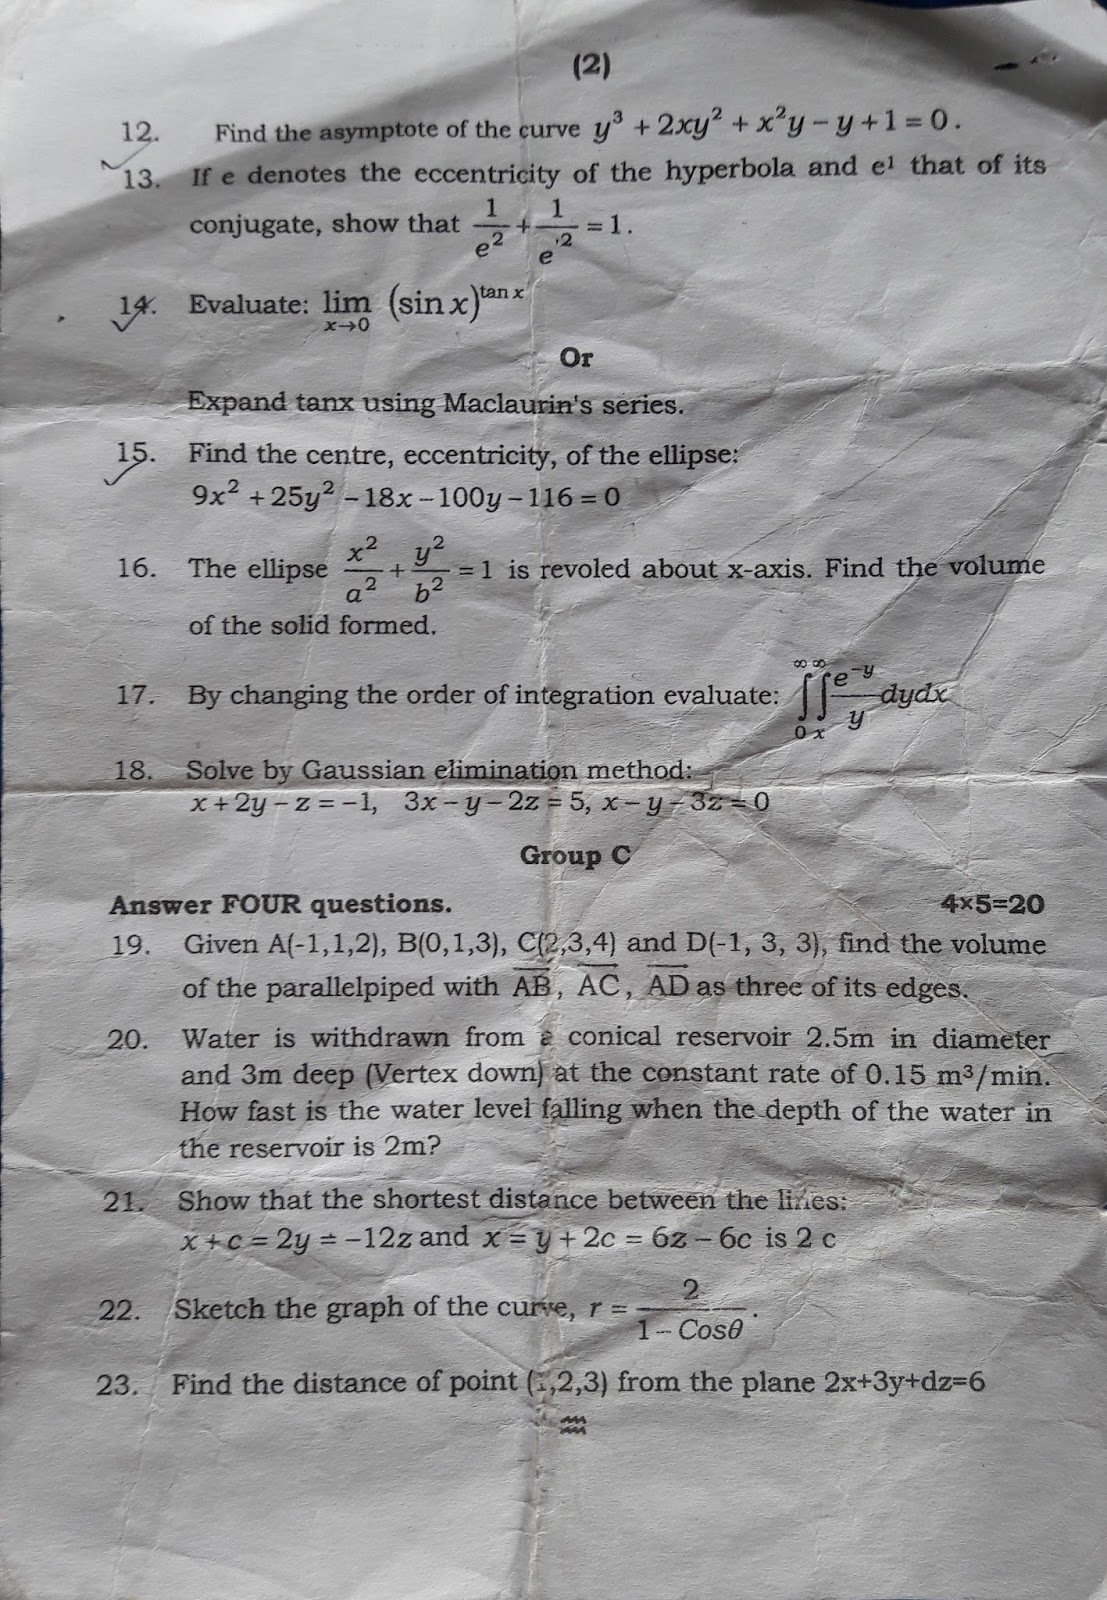 (2)
12. Find the asymptote of the curve y³ + 2xy² + x²y − y + 1 = 0.
13. If e denotes the eccentricity of the hyperbola and e¹ that of its
conjugate, show that 1/e² + 1/e'² = 1.
14. Evaluate: lim x→0 (sin x)^tan x
Or
Expand tanx using Maclaurin's series.
15. Find the centre, eccentricity, of the ellipse:
9x² + 25y² − 18x − 100y − 116 = 0
16. The ellipse x²/a² + y²/b² = 1 is revoled about x-axis. Find the volume
of the solid formed.
17. By changing the order of integration evaluate: ∫₀^∞ ∫ₓ^∞ e^−y/y dydx
18. Solve by Gaussian elimination method:
x + 2y − z = −1, 3x − y − 2z = 5, x − y − 3z = 0
Group C
Answer FOUR questions. 4×5=20
19. Given A(-1,1,2), B(0,1,3), C(2,3,4) and D(-1, 3, 3), find the volume
of the parallelpiped with AB, AC, AD as three of its edges.
20. Water is withdrawn from a conical reservoir 2.5m in diameter
and 3m deep (Vertex down) at the constant rate of 0.15 m³/min.
How fast is the water level falling when the depth of the water in
the reservoir is 2m?
21. Show that the shortest distance between the lines:
x + c = 2y = −12z and x = y + 2c = 6z − 6c is 2 c
22. Sketch the graph of the curve, r = 2/(1 − Cosθ).
23. Find the distance of point (1,2,3) from the plane 2x+3y+dz=6